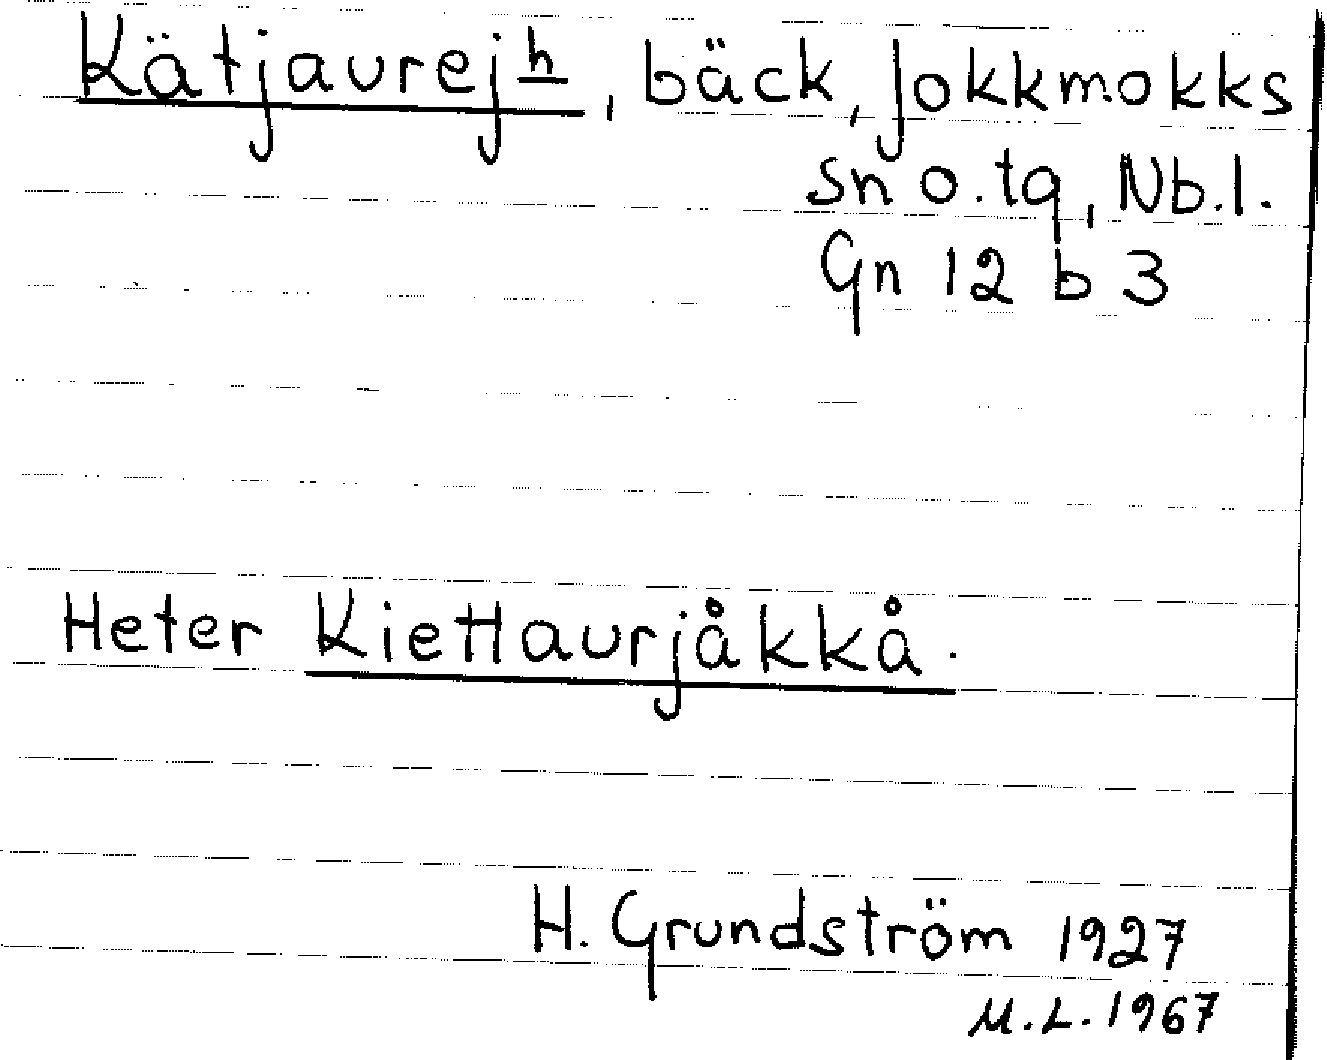 Kätjaurejh, bäck, Jokkmokks
sn o. tg, Nb.l.
Gn 12 b 3
Heter Kiettaurjåkkå.
H. Grundström 1927
M.L. 1967